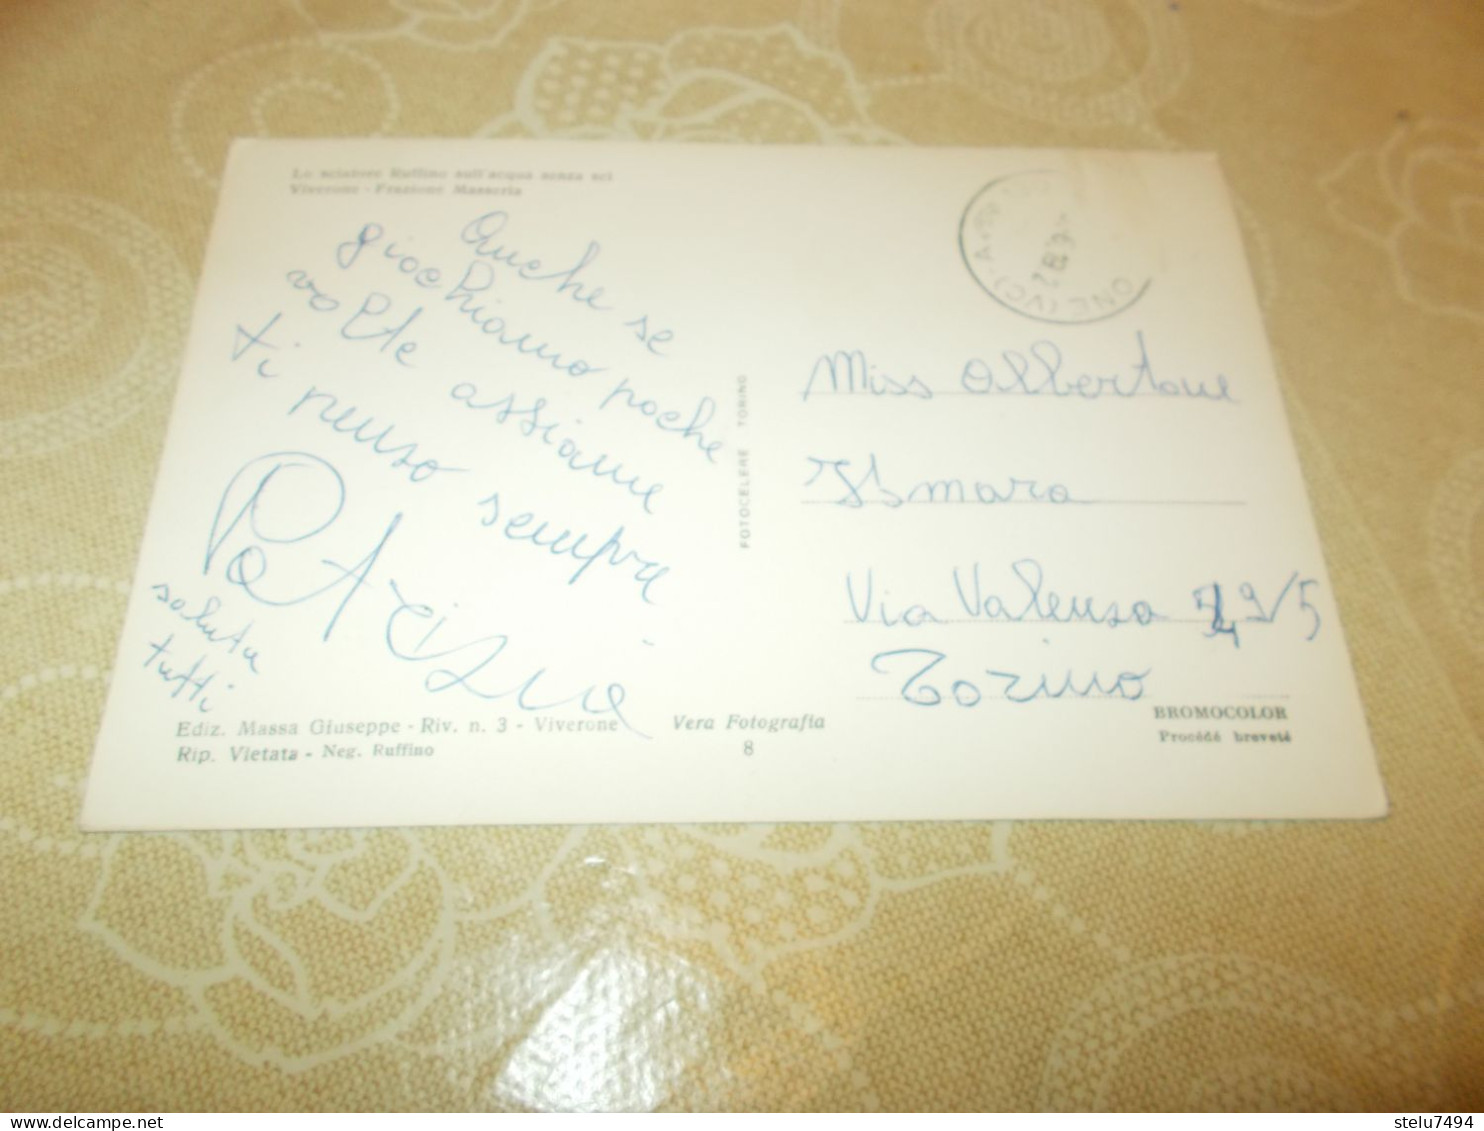 Lo sciatore Ruffino sull'acqua senza sci
Viverone - Frazione Masseria
Anche se
giochiamo poche
volte assieme
ti penso sempre
Patrizia
saluta
tutti
Ediz. Massa Giuseppe - Riv. n. 3 - Viverone
Rip. Vietata - Neg. Ruffino
Vera Fotografia
8
FOTOCELERE TORINO
ONE (VC)
Miss Albertone
Ismara
Via Valenza 49/5
Torino
BROMOCOLOR
Procédé breveté
stelu7494